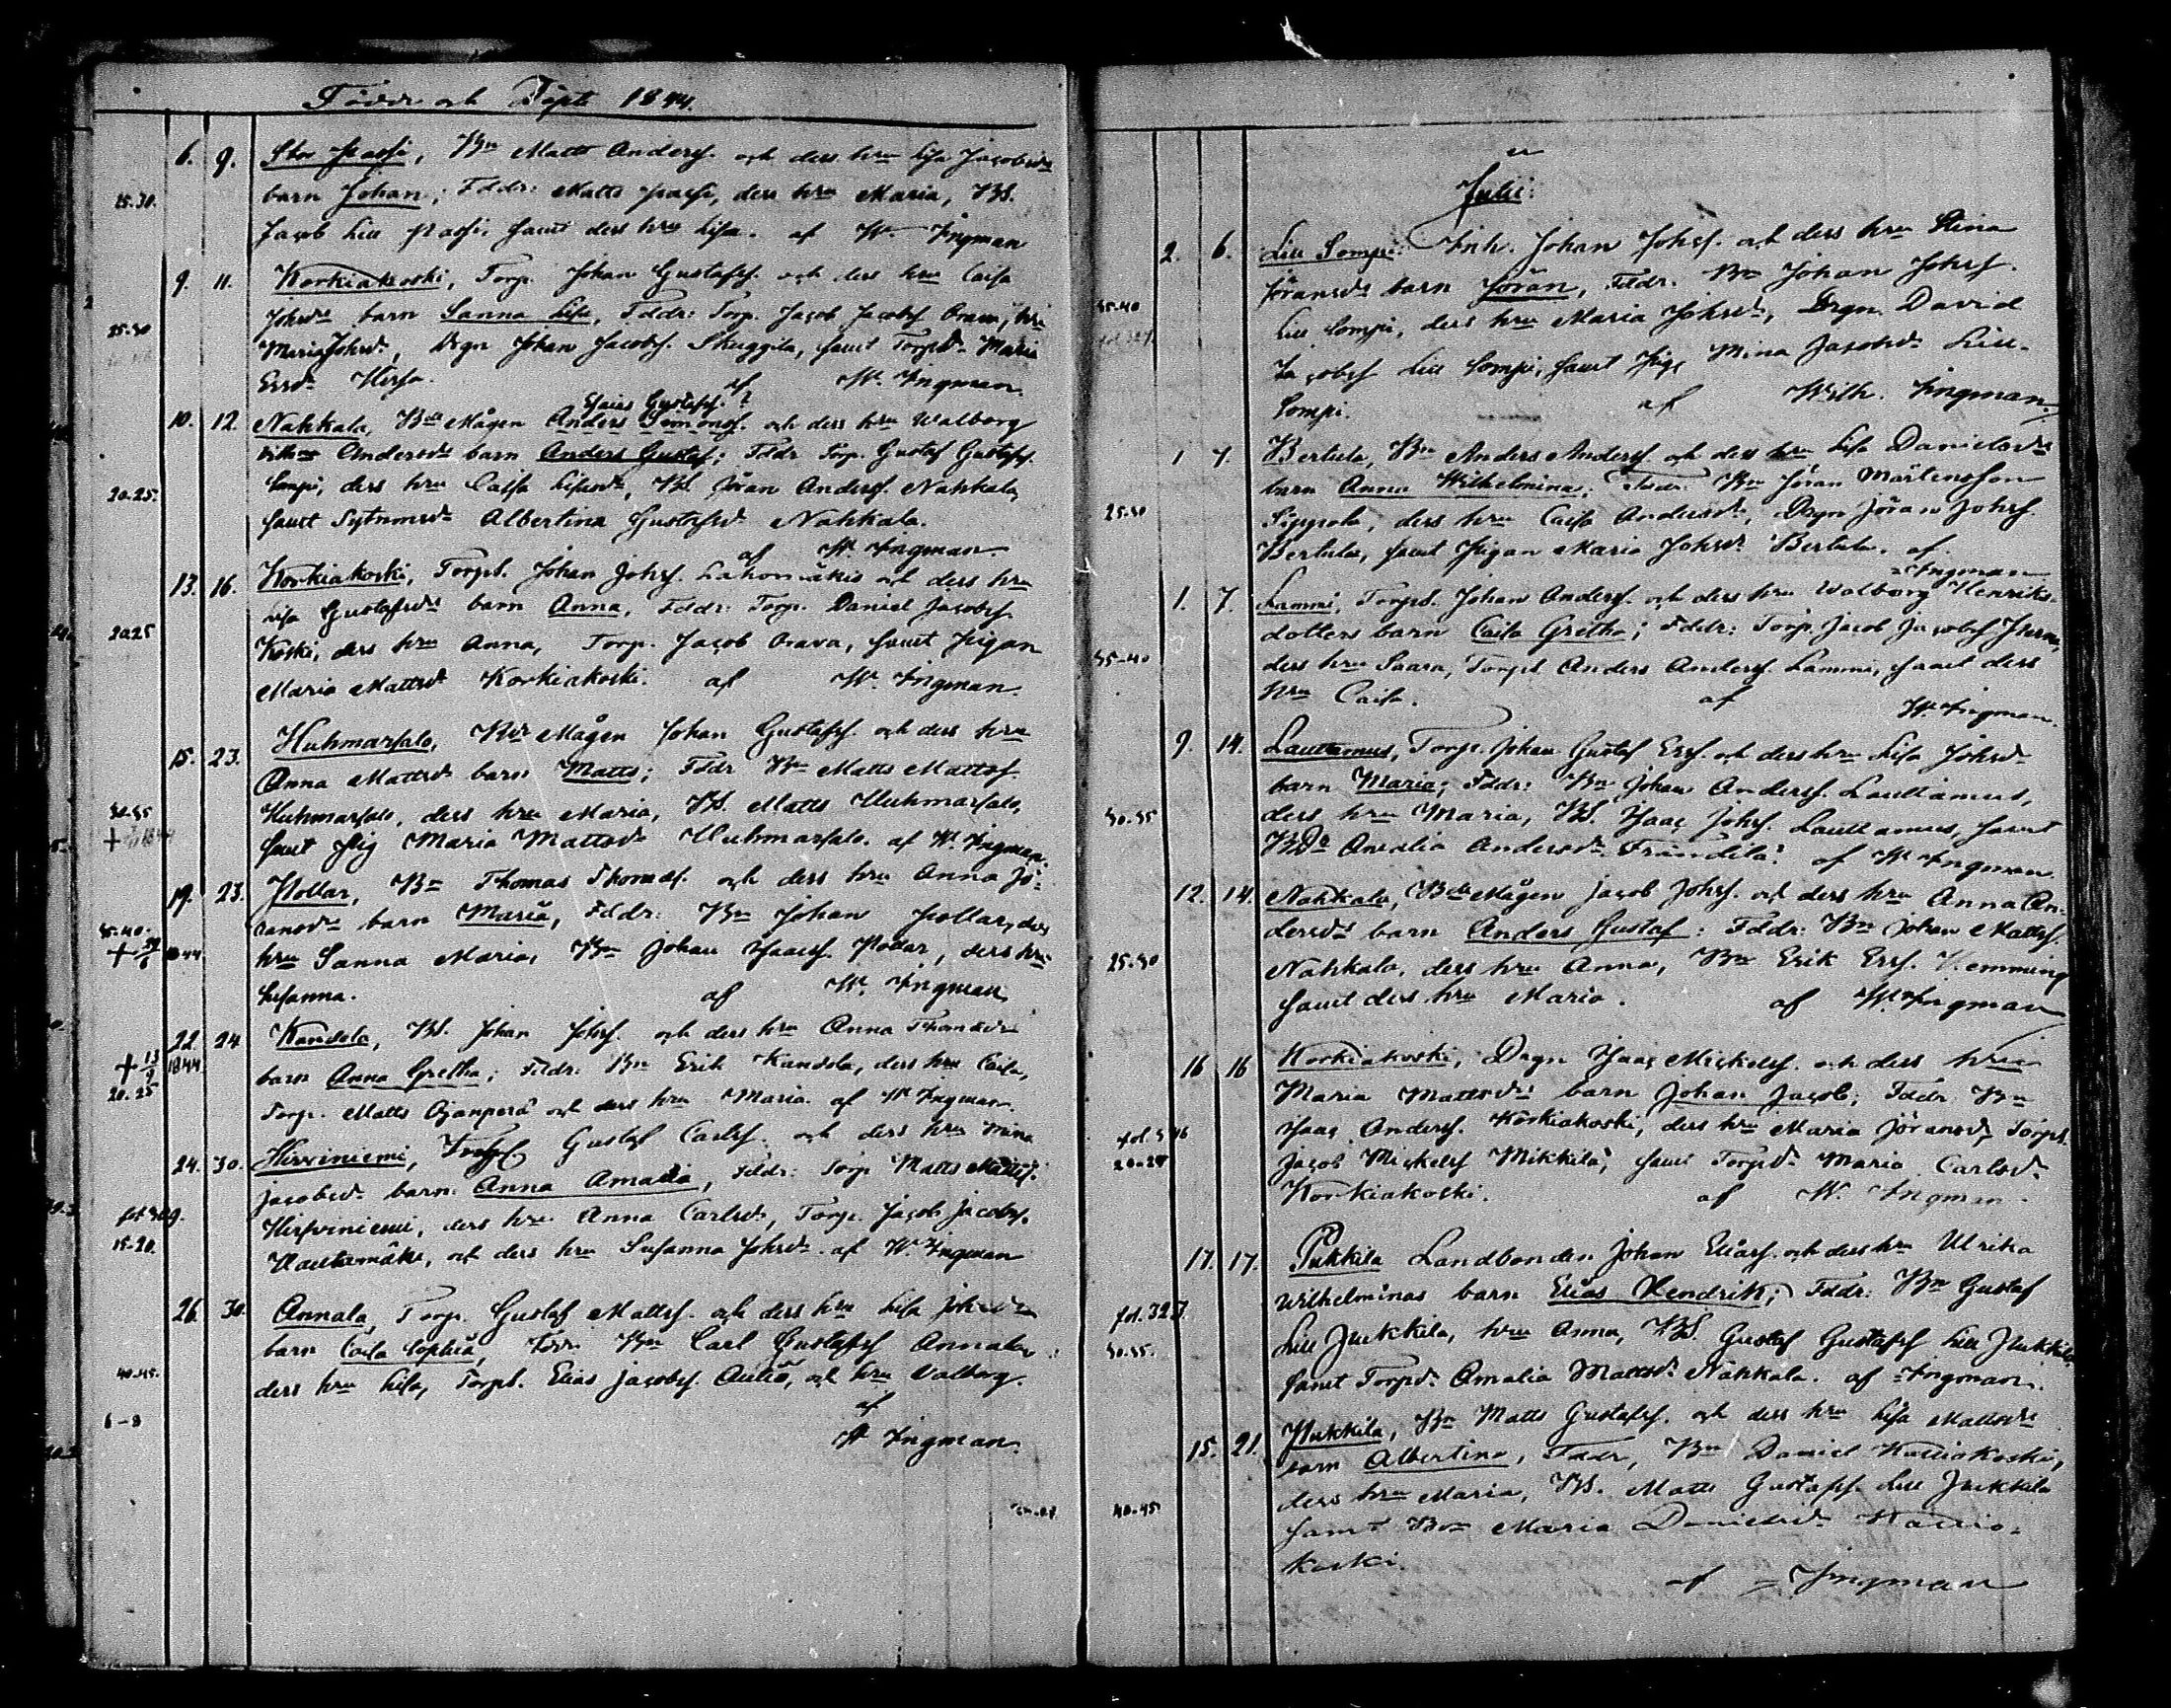 Födde och Döpte 1844.
6. 9. Stor Passi, Bn Matts Andersf. och dess hru Lisa Jacobsdr
25.30. barn Johan; Fddr: Matts Passi, dess hru Maria, BS.
Jacob Lill Passi samt dess hru Lisa. af W. Ingman
9. 11. Korkiakoski, Torp. Johan Gustafsf. och dess hru Caisa
Johsdr barn Sanna Lisa, Fddr: Torp. Jacob Jacobsf Orava, hru
25.30 Maria Johsdr, Drgn Johan Jacobsf. Skuggila, samt Torpdr Maria
Ersdr af W. Ingman.
Esaias Gustafsf. ?
10. 12. Nahkala, Bde Mågen Anders Simonsf. och dess hru Walborg
Andersdr barn Anders Gustaf; Fddr Torp. Gustaf Gustafsf.
20.25. Sompi, dess hru Caisa, BS. Jöran Andersf. Nahkala,
samt Albertina Gustafsdr Nahkala.
af W. Ingman.
13. 16. Korkiakoski, Torpd. Johan Johsf. och dess hru
Lisa Gustafsdr barn Anna, Fddr: Torp. Daniel Jacobsf.
20.25 Koski, dess hru Anna, Torp. Jacob Orava, samt Pigan
Maria Mattsdr Korkiakoski. af W. Ingman.
15. 23. Huhmarsalo, Mågen Johan Gustafsf. och dess hru
Anna Mattsdr barn Matts; Fddr Bn Matts Mattsf.
30.35 Huhmarsalo, dess hru Maria, BS. Matts Huhmarsalo,
+ samt Pig Maria Mattsdr Huhmarsalo. af W. Ingman.
19. 23. Pollar, Bn Thomas Thomasf. och dess hru Anna Jö-
35.40. ransdr barn Maria, Fddr: Bn Johan Pollar, dess
+ 29/6 1844 hru Sanna Maria, Bn Johan Isaacsf. Pollar, dess hru
Susanna. af W. Ingman
22. 24 Kandola, BS. Johan Johsf. och dess hru Anna Thomasdr
+ 13/9 1844 barn Anna Gretha; Fddr: Bn Erik Kandola, dess hru Caisa,
20.25 Torp. Matts Ojanperä och dess hru Maria. af W. Ingman.
24. 30. Hirviniemi, Gustaf Carlsf. och dess hru Mina
Jacobsdr barn. Anna Amalia, Fddr: Torp Matts Mattsf.
fol 309. Hirfviniemi, dess hru Anna Carlsdr, Torp. Jacob Jacobsf.
15-20. Hautamäki, och dess hru Susanna Johsdr. af W. Ingman
26. 30. Annala, Torp. Gustaf Mattsf. och dess hru Lisa Johsdr
barn Caisa Sophia, Fddr. Bn Carl Gustafsf Annala
40.45. dess hru Lisa, Torpd. Elias Jacobsf. Autio, och hru Valborg.
6-8 af
W Ingman.
Julii:
2. 6. Lill Sompi: Inh. Johan Johsf. och dess hru Stina
Jöransdr barn Jöran, Fddr. Bn Johan Johsf.
35.40 Lill Sompi, dess hru Maria Johsdr, Drgn. David
Jacobsf Lill Sompi, samt Pig, Mina Jacobsdr Lill-
Sompi. af Wilh. Ingman.
1 7. Bertula, Bn Anders Andersf och dess hru Lisa Danielsdr
barn Anna Wilhelmina; Fddr. Bn Jöran Mårtensson
25.30 Sippola, dess hru Caisa Andersdr, Drgn Jöran Johsf.
Bertula, samt Pigan Maria Johsdr Bertula. af.
= Ingman
1. 7. Lammi, Torpd. Johan Andersf. och dess hru Walborg Henriks-
dotters barn Caisa Gretha; Fddr: Torp. Jacob Jacobsf
35-40 dess hru Saara, Torpd. Anders Andersf. Lammi, samt dess
hru Caisa. af W. Ingman.
9. 14. Lauttamus, Torp. Johan Gustaf Ersf. och dess hru Lisa Johsdr
barn Maria; Fddr: Bn Johan Andersf. Lauttamus,
30.35 dess hru Maria, BS. Isaac Johsf. Lauttamus, samt
BDr Amalia Andersdr Frändilä. af W. Ingman
12. 14. Nahkala, Bde Mågen Jacob Johsf. och dess hru Anna An-
dersdr barn Anders Gustaf: Fddr: Bn Johan Mattsf.
25.30 Nahkala, dess hru Anna, Bn Erik Ersf. Hemming
samt dess hru Maria. af W. Ingman
16 16 Korkiakoski, Drgn Isaac Mickelsf. och dess hru
Maria Mattsdr barn Johan Jacob; Fddr Bn
Isaac Andersf. Korkiakoski, dess hru Maria Jöransdr, Torpd.
20-25 Jacob Mickelsf Mikkilä, samt Torpdr Maria Carlsdr
Korkiakoski. af W. Ingman.
17. 17. Pukkila Landbonden Johan Eliasf. och dess hru Ulrika
Wilhelminas barn Elias Hendrik; Fddr: Bn Gustaf
fol. 327. Lill Pukkila, hru Anna, BS. Gustaf Gustafsf Lill Pukkila
30.35. samt Torpdr. Amalia Mattsdr. Nahkala. af = Ingman.
15. 21. Pukkila, Bn Matts Gustafsf. och dess hru Lisa Mattsdr
barn Albertina, Fddr, Bn Daniel Kalliokoski,
dess hru Maria, BS. Matts Gustafsf. Lill Pukkila
40.45 samt Maria Danielsdr Kallio-
koski.
af = Ingman